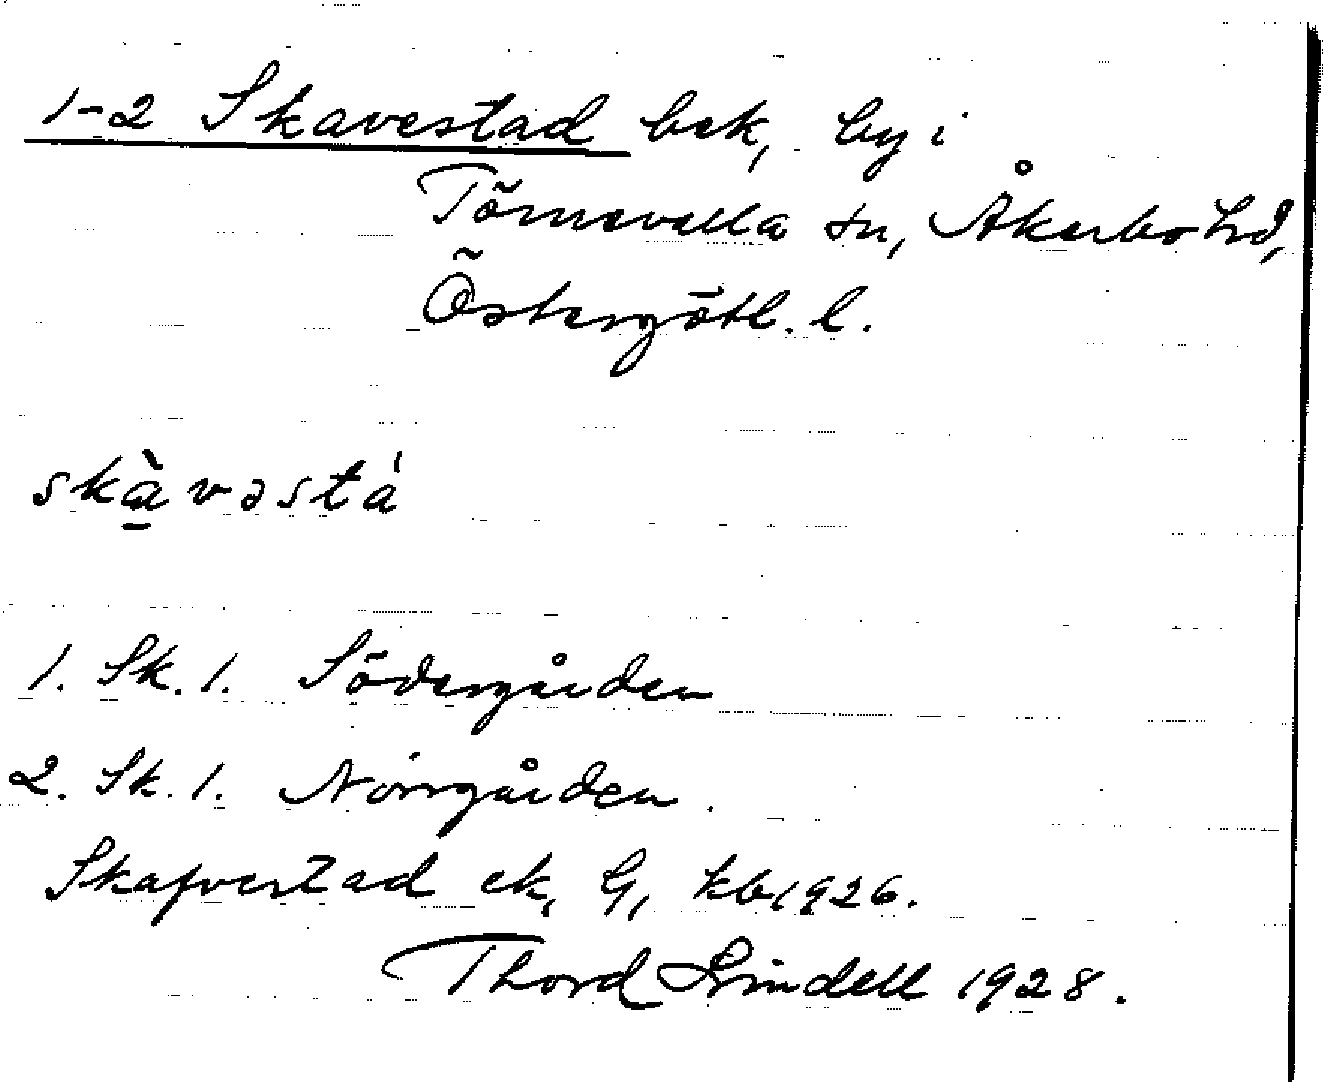 1-2 Skavestad bek, by i
Törnevalla sn, Åkerbo hd,
Östergötl. l.
skà̱vəstá
1. Sk. 1. Södergården
2. Sk. 1. Norrgården.
Skafvestad ek, G, kb 1926.
Thord Lindell 1928.